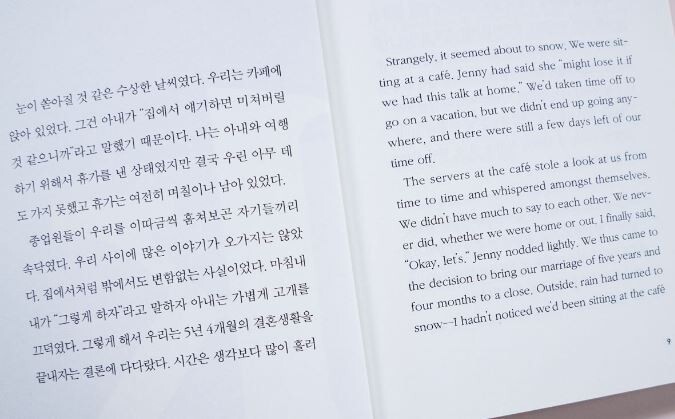 눈이 쏟아질 것 같은 수상한 날씨였다. 우리는 카페에
앉아 있었다. 그건 아내가 “집에서 얘기하면 미쳐버릴
것 같으니까”라고 말했기 때문이다. 나는 아내와 여행
하기 위해서 휴가를 낸 상태였지만 결국 우린 아무 데
도 가지 못했고 휴가는 여전히 며칠이나 남아 있었다.
종업원들이 우리를 이따금씩 훔쳐보곤 자기들끼리
속닥였다. 우리 사이에 많은 이야기가 오가지는 않았
다. 집에서처럼 밖에서도 변함없는 사실이었다. 마침내
내가 “그렇게 하자”라고 말하자 아내는 가볍게 고개를
끄덕였다. 그렇게 해서 우리는 5년 4개월의 결혼생활을
끝내자는 결론에 다다랐다. 시간은 생각보다 많이 흘러
Strangely, it seemed about to snow. We were sit-
ting at a café. Jenny had said she “might lose it if
we had this talk at home.” We’d taken time off to
go on a vacation, but we didn’t end up going any-
where, and there were still a few days left of our
time off.
The servers at the café stole a look at us from
time to time and whispered amongst themselves.
We didn’t have much to say to each other. We nev-
er did, whether we were home or out. I finally said,
“Okay, let’s.” Jenny nodded lightly. We thus came to
the decision to bring our marriage of five years and
four months to a close. Outside, rain had turned to
snow—I hadn’t noticed we’d been sitting at the café
9